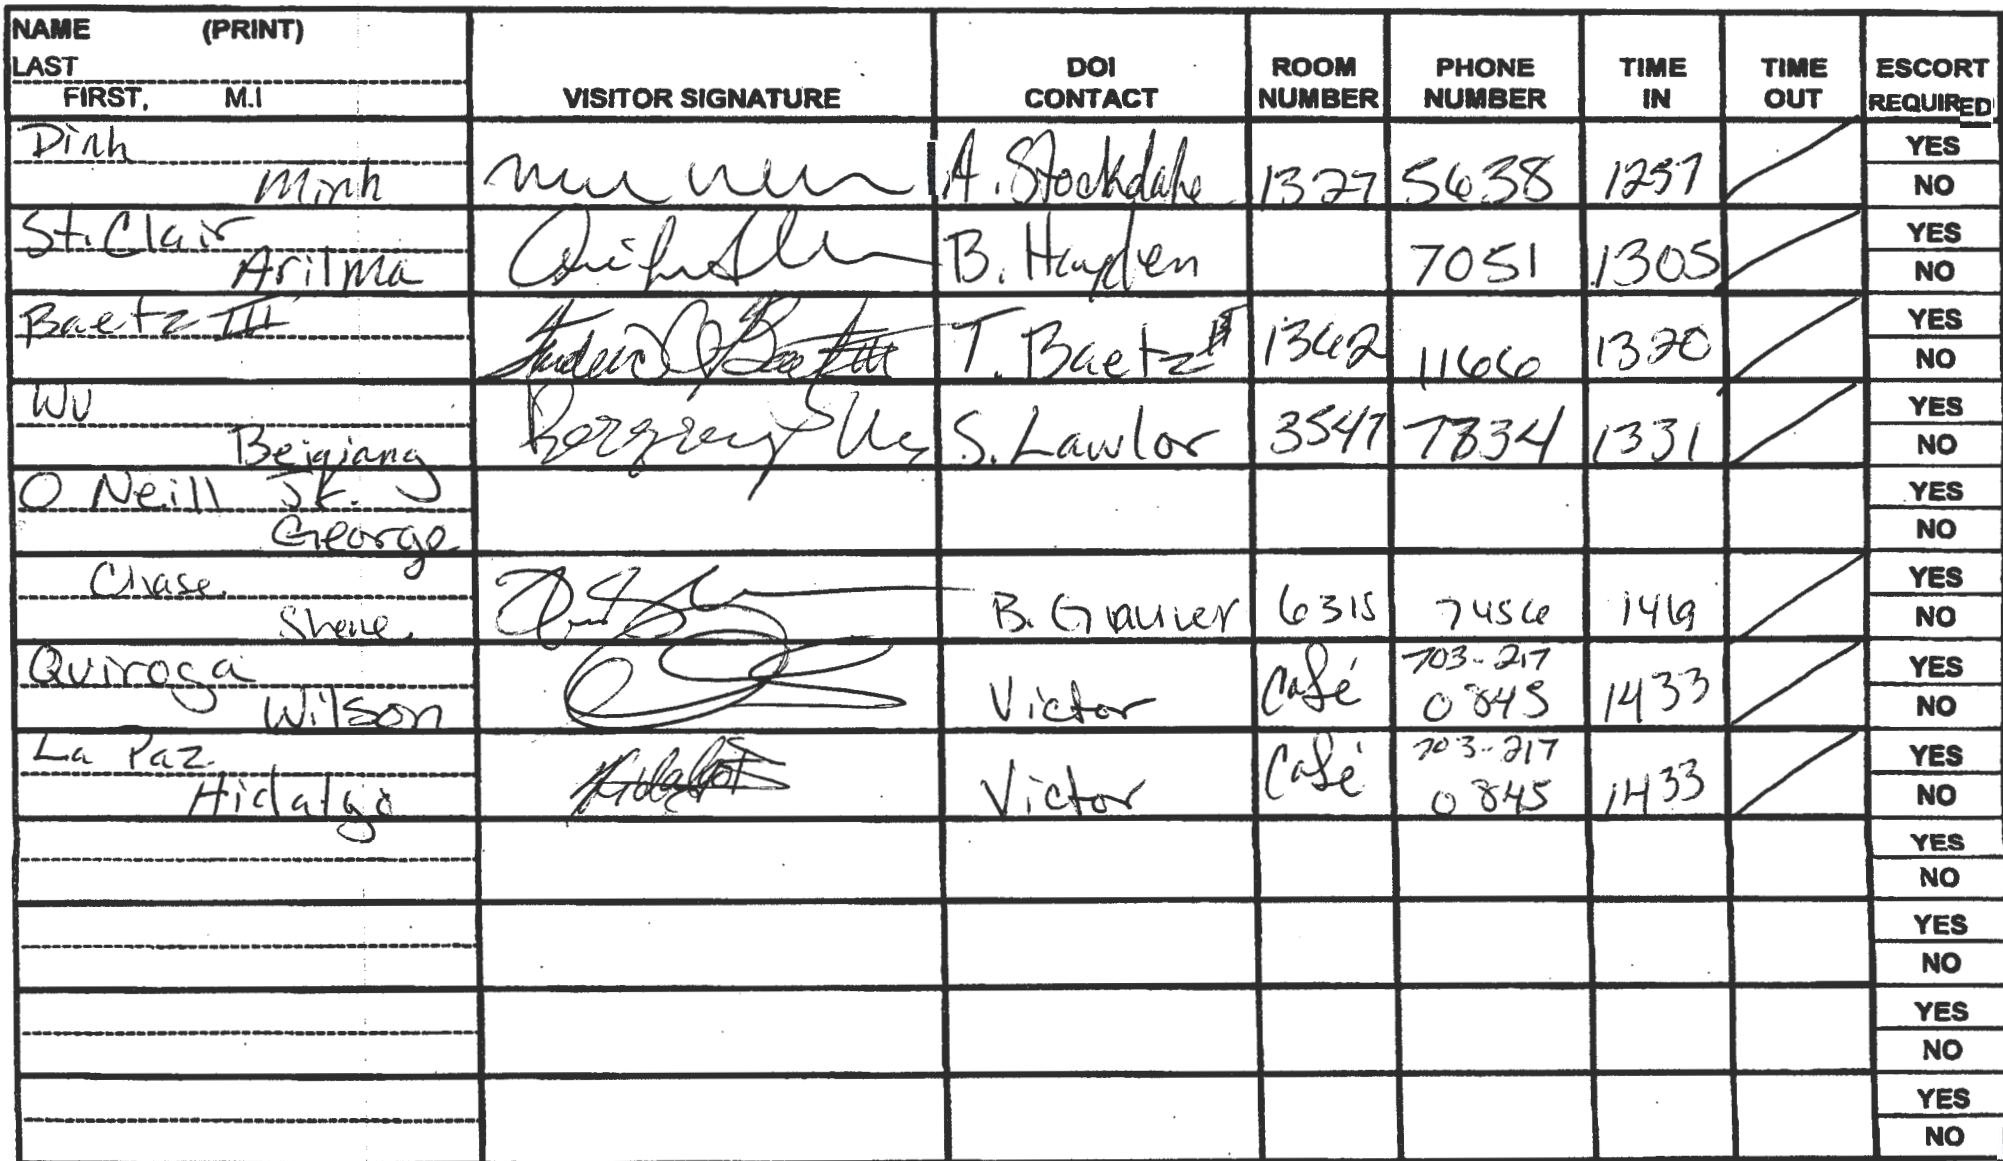 NAME (PRINT)
LAST
FIRST, M.I
VISITOR SIGNATURE
DOI CONTACT
ROOM NUMBER
PHONE NUMBER
TIME IN
TIME OUT
ESCORT REQUIRED
Dinh
Minh
A. Stockdale 1327 5638 1257
YES
NO
St. Clair
Arilma
B. Hayden 7051 1305
YES
NO
Baetz III
T. Baetz 1362 1166 1320
YES
NO
Wu
Beiqiang
S. Lawlor 3547 7834 1331
YES
NO
O Neill Jr.
George
YES
NO
Chase
B. 6315 7456
YES
NO
Quiroga
Wilson
Victor Café 703-217 0845 1433
YES
NO
La Paz
Hidalgo
Victor Café 703-217 0845 1433
YES
NO
YES
NO
YES
NO
YES
NO
YES
NO